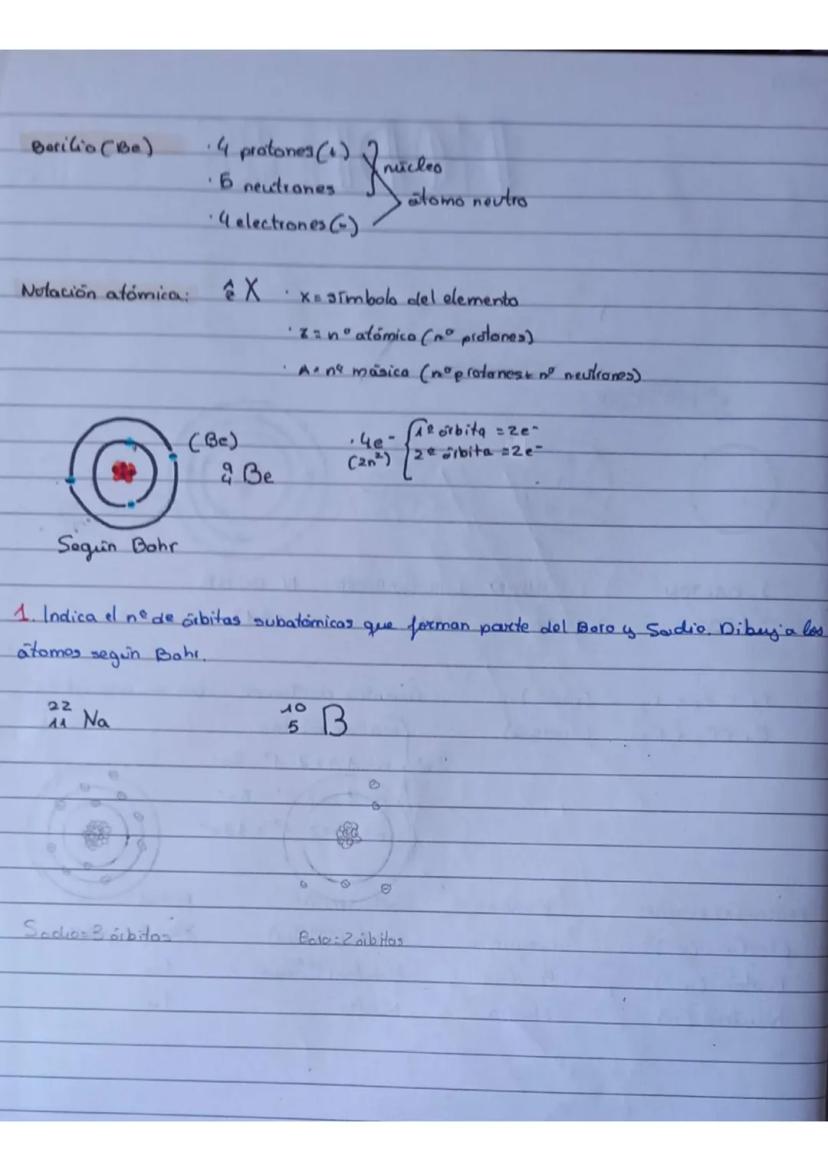 Berilio (Be) · 4 protones (+) núcleo
· 5 neutrones
átomo neutro
· 4 electrones (-)
Notación atómica: X · X = símbolo del elemento
· Z = nº atómico (nº protones)
· A = nº másico (nº protones + nº neutrones)
(Be)
9 4 Be
· 4e- 1ª órbita = 2e-
(2n²) 2ª órbita = 2e-
Según Bohr
1. Indica el nº de órbitas subatómicas que forman parte del Boro y Sodio. Dibuja los
átomos según Bohr.
22 11 Na 10 5 B
Sodio = 3 órbitas Boro: 2 órbitas